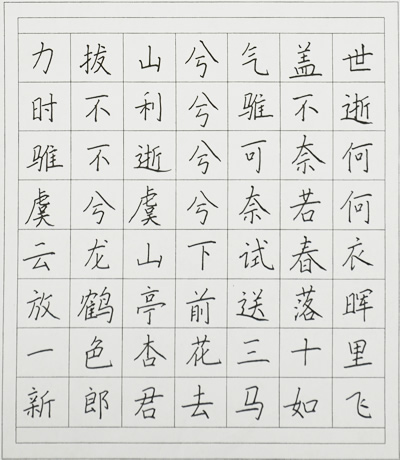 力拔山兮气盖世
时不利兮骓不逝
骓不逝兮可奈何
虞兮虞兮奈若何
云龙山下试春衣
放鹤亭前送落晖
一色杏花三十里
新郎君去马如飞